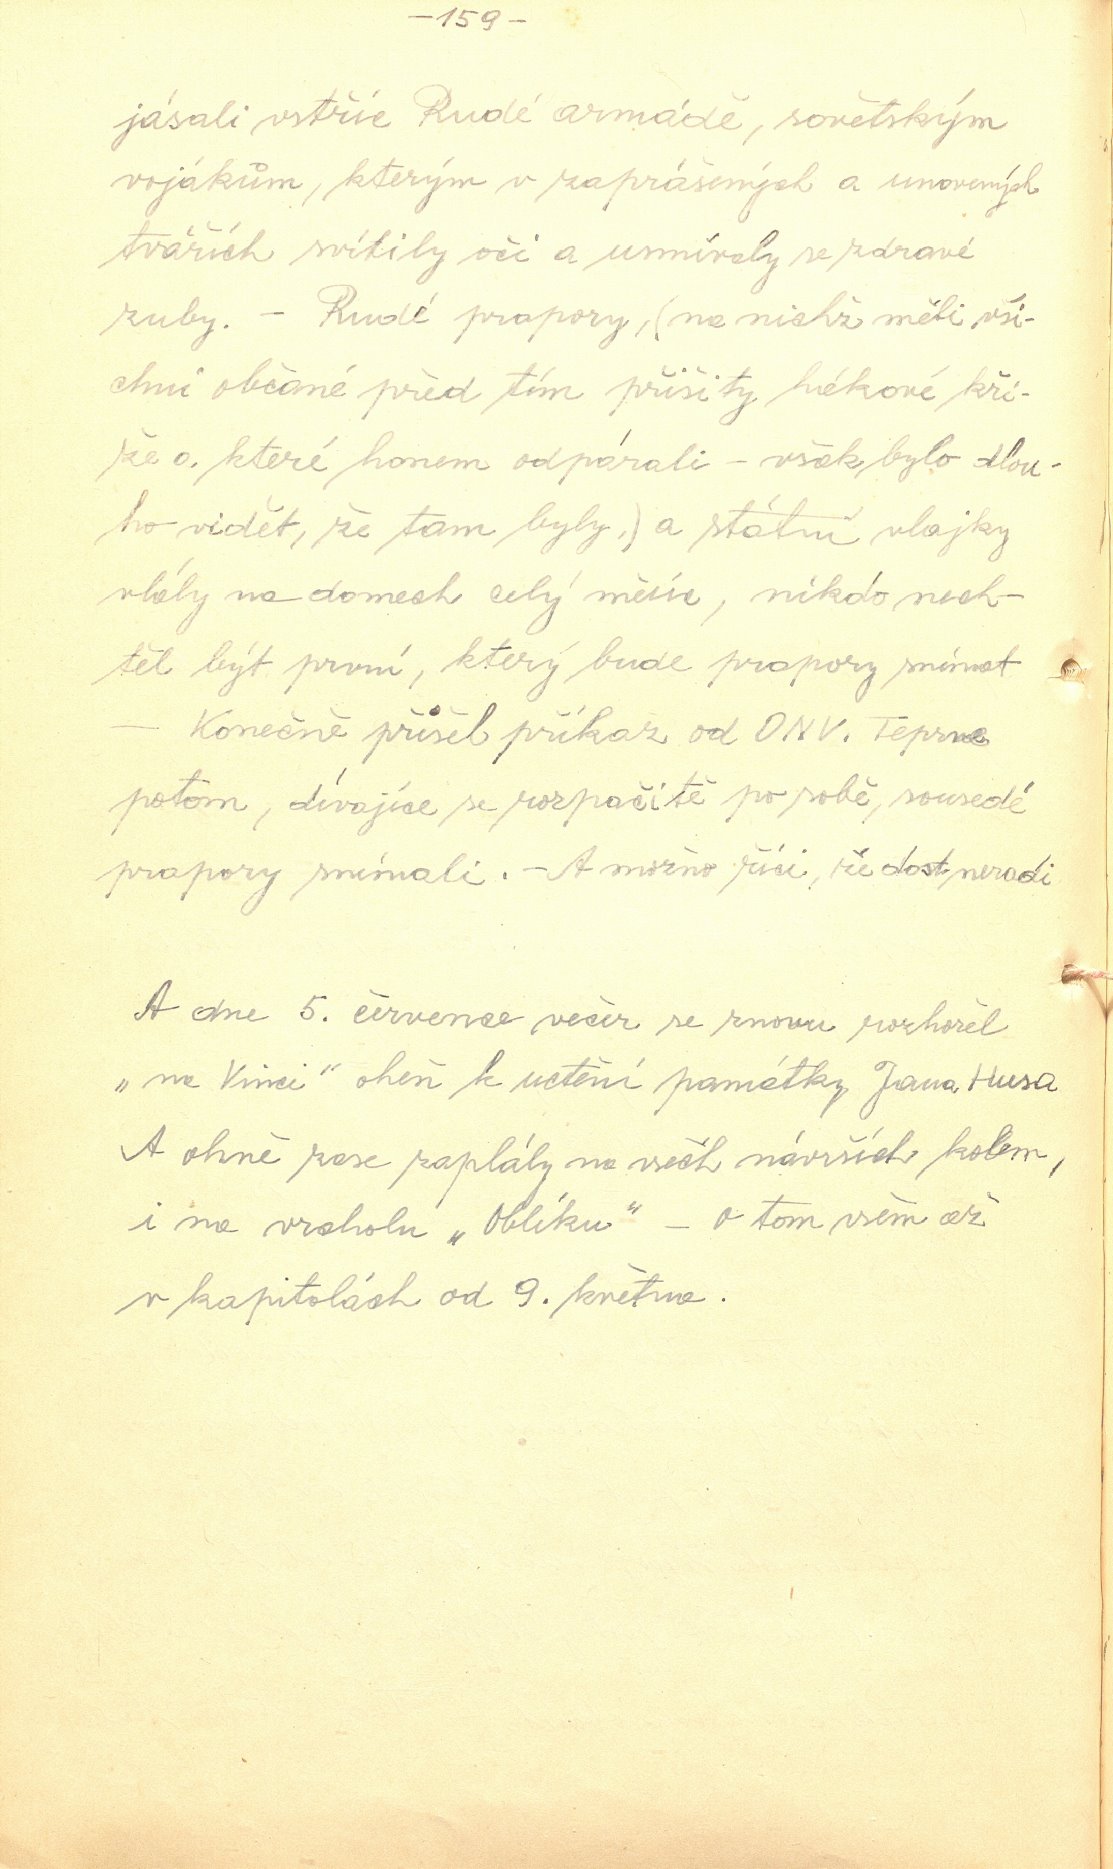 -159-
jásali vstříc Rudé armádě, sovětským
vojákům, kterým v zaprášených a unavených
tvářích svítily oči a usmívaly se zdravé
zuby. - Rudé prapory, (na nichž měli vši-
chni občané před tím přišity hákové kří-
že a. které honem odpárali - však bylo dlou-
ho vidět, že tam byly.) a státní vlajky
vlály na domech celý měsíc, nikdo nech-
těl být první, který bude prapory snímat
- Konečně přišel příkaz od ONV. Teprve
potom, dívajíce se rozpačitě po sobě, sousedé
prapory snímali. - A možno říci, že dost neradi
A dne 5. července večer se znovu rozhořel
„na Vinci" oheň k uctění památky Jana Husa
A ohně zase zaplály na všech návrších kolem,
i na vrcholu „Oblíku" - o tom všem až
v kapitolách od 9. května.